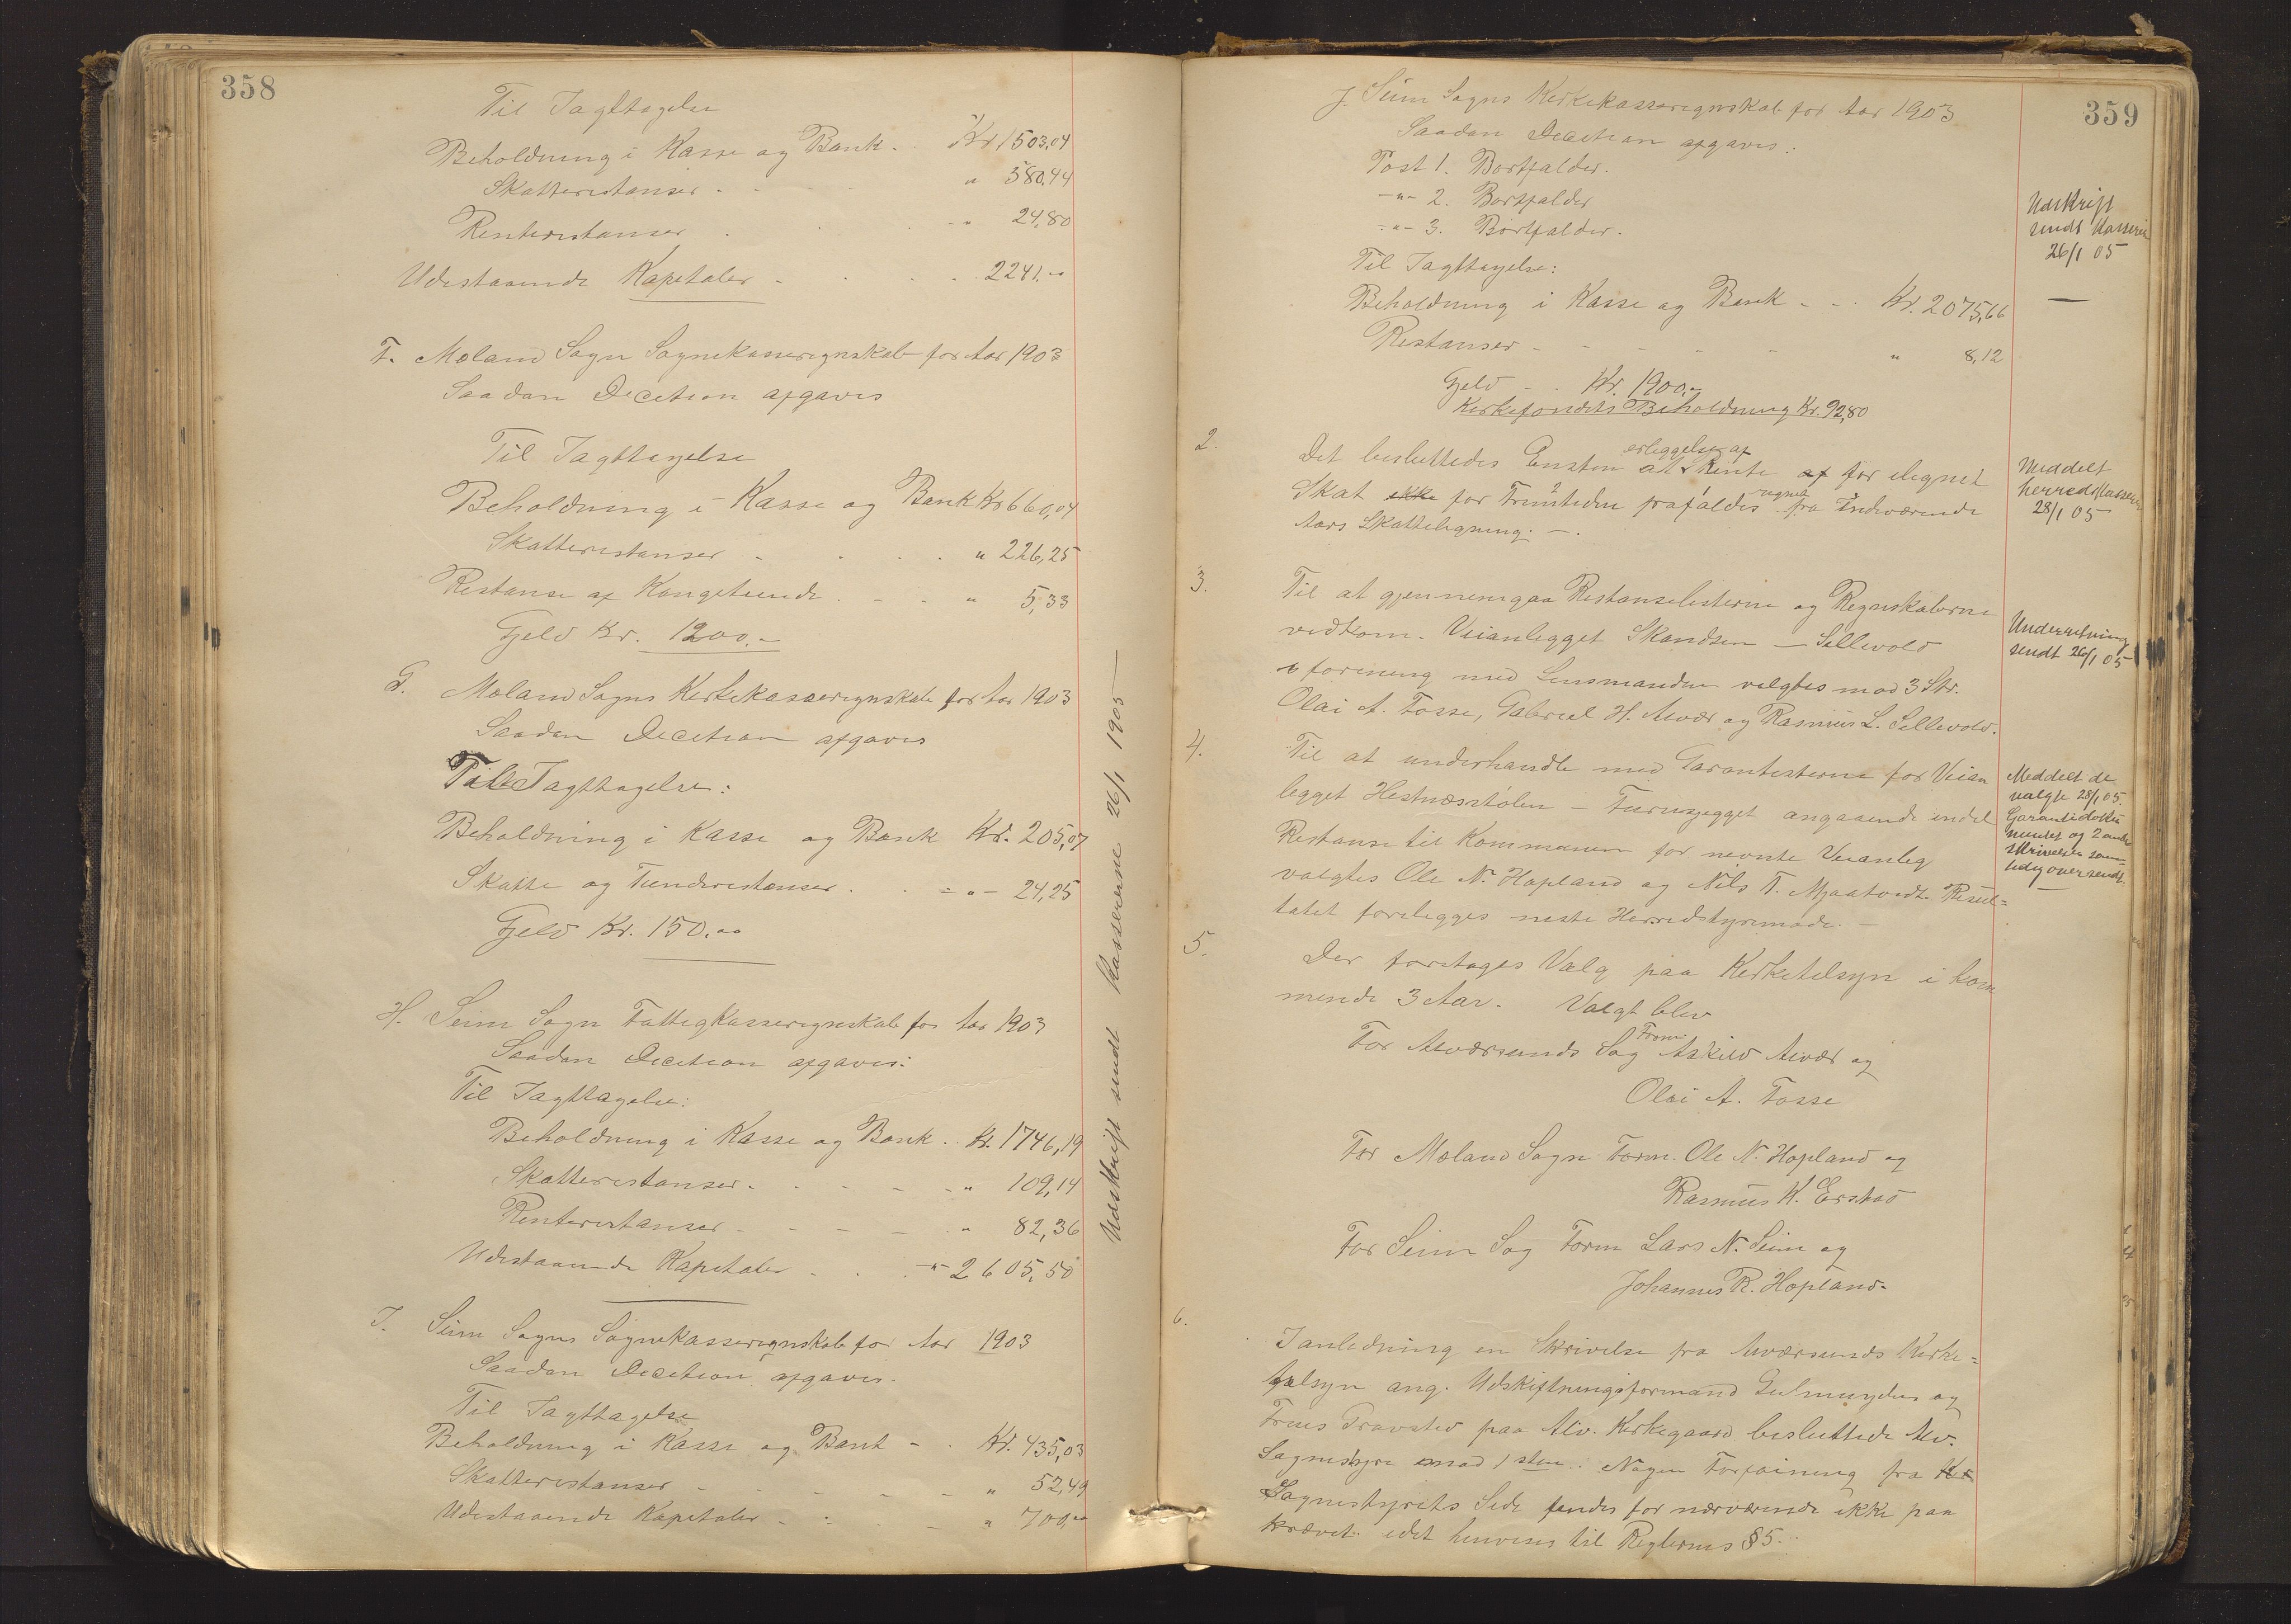 358
Til Iagttagelse
Beholdning i Kasse og Bank. Kr 1503,04
Skatterestanser - - " 580,44
Renterestanser - - " 24,80
Udestaaende Kapitaler - - - 2241.00
F. Mæland Sogn Sognekasseregnskab for Aar 1903
Saadan Decetion afgaves
Til Iagttagelse
Beholdning i Kasse og Bank Kr 660,04
Skatterestanser - - - " 226,25
Restanse af Kongetiende - - " 5,33
Gjeld Kr. 1200.-
G. Mæland Sogns Kirkekasseregnskab for Aar 1903
Saadan Decetion afgaves
Til Iagttagelse:
Beholdning i Kasse og Bank Kr. 205,07
Skatte og Tienderestanser. - " - 24,25
Gjeld Kr. 150.00
H. Seim Sogn Fattigkasseregnskab for Aar 1903
Saadan Decetion afgaves:
Til Iagttagelse:
Beholdning i Kasse og Bank.. Kr. 1746,19
Skatterestanser - - - - " 109,14
Renterestanser - - - " 82,36
Udestaaende Kapitaler - - " - 2605,50
I. Seim Sogns Sognekasseregnskab for Aar 1903
Saadan Decetion afgaves.
Til Iagttagelse
Beholdning i Kasse og Bank - . Kr. 435,03
Skatterestanser - - - - " 52,49
Udestaaende Kapitaler - - - " 700,00
Udskrift sendt Kassererne 26/1 1905
359
J. Seim Sogns Kirkekasseregnskab for Aar 1903
Saadan Decetion afgaves:
Post 1. Bortfalder.
-"- 2. Bortfalder
-"- 3. Bortfalder.
Til Iagttagelse:
Beholdning i Kasse og Bank - - Kr. 2075,66
Restanser - - - - " 8,12
Gjeld - . Kr. 1900.-
Kirkefondets Beholdning Kr. 92,80
Udskrift
sendt Kasserer
26/1 05
2. Det besluttedes Enstem at erleggelse af Rente af for ilegnet
Skat ikke for Fremtiden frafaldes regnet fra Indeværende
Aars Skatteligning. -.
Meddelt
herredskasserer
28/1 05
3. Til at gjennemgaa Restanselisterne og Regnskaberne
vedkom. Veianlegget Skandsen - Sellevold
i forening med Lensmanden valgtes mod 3 St.
Olai A. Fosse, Gabriel H. Alvær og Rasmus L. Sellevold.
Underretning
sendt 26/1 05
4. Til at underhandle med Garantisterne for Veian
legget Hestnæsstølen - Furuegget angaaende endel
Restanse til Kommunen for nevnte Veianleg
valgtes Ole N. Hopland og Nils T. Mjaatvedt. Resul=
tatet forelegges neste Herredstyremøde. -
Meddelt de
valgte 28/1 05.
Garantidoku
mentet og 2 andre
skrivelser sam-
tidig oversendt.
5. Der foretoges Valg paa Kirketilsyn i kom
mende 3 Aar. Valgt blev
For Alværsunds Sog Form Askild Alvær og
Olai A. Fosse
For Mæland Sogn Form. Ole N. Hopland og
Rasmus K. Erstad
For Seim Sog Form Lars N. Seim og
Johannes R. Hopland.
6. I anledning en Skrivelse fra Alværsunds Kirke=
tilsyn ang. Udskiftningsformand Gulmeyden og
Frues Gravsted paa Alv. Kirkegaard besluttede Alv.
Sognestyre mod 1 stem. Nogen Forføining fra
Sognestyrets Side findes for nærværende ikke paa
krævet idet henvises til Reglernes § 5.